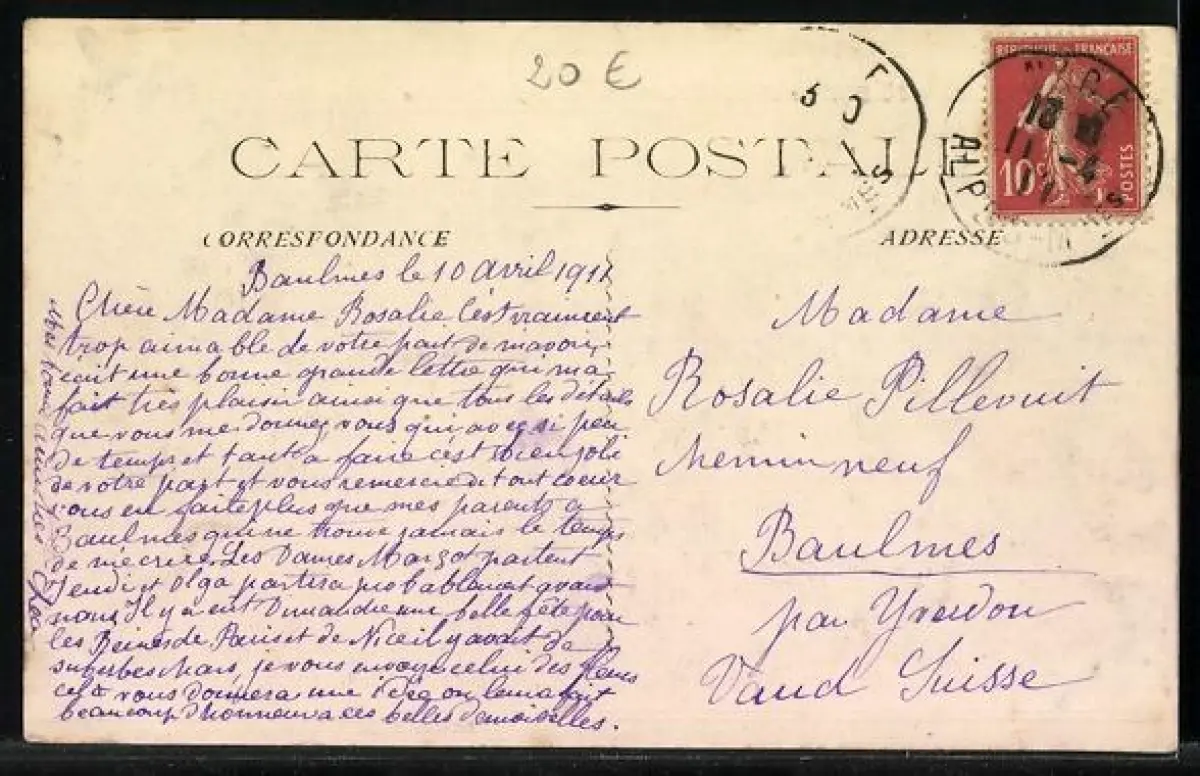 20 €
CARTE POSTALE
CORRESPONDANCE
ADRESSE
REPUBLIQUE FRANÇAISE
10 c
POSTES
ALP
Baulmes le 10 avril 1911
Chère Madame Rosalie C'est vraiment
trop aimable de votre part de mavoir
écrit une bonne grande lettre qui ma
fait très plaisir ainsi que tous les détails
que vous me donnez, vous qui avez si peu
de temps et tant a faire c'est bien joli
de votre part et vous remercie de tout coeur
vous en faite plus que mes parents a
Baulmes qui ne trouve jamais le temps
de mécrire. Les Dames Margot partent
Jendi et Olga partira probablement avant
nous. Il y a eut Dimanche une belle fête pour
les Reines de Paris et de Nice il y avait de
superbes chars, je vous envoye celui des fleurs
cela vous donnera une idée on leur a fait
beaucoup d'honneur a ces belles demoiselles.
Madame
Rosalie Pillevuit
Chemin neuf
Baulmes
par Yverdon
Vaud Suisse